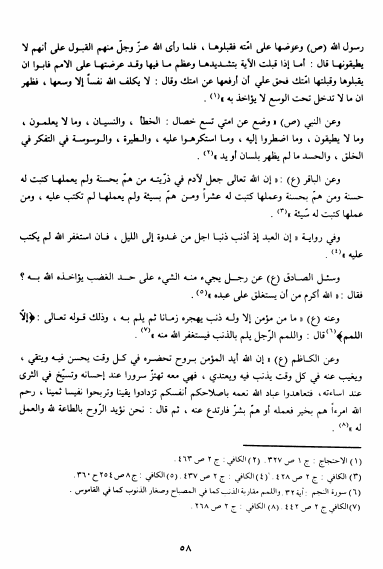 رسول الله (ص) وعرضها على امّته فقبلوها ، فلما رأى الله عزّ وجلّ منهم القبول على أنهم لا
يطيقونها قال : أما إذا قبلت الآية بتشديدها وعظم ما فيها وقد عرضتها على الامم فابوا ان
يقبلوها وقبلتها امّتك فحق علي أن أرفعها عن امتك وقال : لا يكلف الله نفساً إلا وسعها ، فظهر
ان ما لا تدخل تحت الوسع لا يؤاخذ به »(١) .
وعن النبي (ص) « وضع عن امتي تسع خصال : الخطأ ، والنسيان ، وما لا يعلمون ،
وما لا يطيقون ، وما اضطروا إليه ، وما استكرهوا عليه ، والطيرة ، والوسوسة في التفكر في
الخلق ، والحسد ما لم يظهر بلسان أو يد »(٢) .
وعن الباقر (ع) : « إن الله تعالى جعل لآدم في ذرّيته من همّ بحسنة ولم يعملها كتبت له
حسنة ومن همّ بحسنة وعملها كتبت له عشراً ومن همّ بسيئة ولم يعملها لم تكتب عليه ، ومن
عملها كتبت له سّيئة »(٣) .
وفي رواية « إن العبد إذ أذنب ذنبا اجل من غدوة إلى الليل ، فان استغفر الله لم يكتب
عليه »(٤) .
وسئل الصادق (ع) عن رجل يجيء منه الشيء على حد الغضب يؤاخذه الله به ؟
فقال : « الله أكرم من أن يستغلق على عبده »(٥) .
وعنه (ع) « ما من مؤمن إلا وله ذنب يهجره زمانا ثم يلم به ، وذلك قوله تعالى : ﴿إلّا
اللمم﴾(٦) قال : واللمم الرّجل يلم بالذنب فيستغفر الله منه »(٧) .
وعن الكاظم (ع) « إن الله أيد المؤمن بروح تحضره في كل وقت يحسن فيه ويتقي ،
ويغيب عنه في كل وقت يذنب فيه ويعتدي ، فهي معه تهتزّ سرورا عند إحسانه وتسيّخ في الثرى
عند اساءته، فتعاهدوا عباد الله نعمه باصلاحكم أنفسكم تزدادوا يقينا وتربحوا نفيسا ثمينا ، رحم
الله امرءاً هم بخير فعمله أو همّ بشرّ فارتدع عنه ، ثم قال : نحن نؤيد الرّوح بالطاعة لله والعمل
له »(٨) .
(١) الاحتجاج : ج ١ ص ٣٢٧. (٢) الكافي : ج ٢ ص ٤٦٣ .
(٣) الكافي : ج ٢ ص ٤٢٨ . (٤) الكافي : ج ٢ ص ٤٣٧ . (٥) الكافي : ج ٨ ص ٢٥٤ ح ٣٦٠.
(٦) سورة النجم : آية ٣٢. واللمم مقاربة الذنب كما في المصباح وصغار الذنوب كما في القاموس .
(٧) الكافي ج ٢ ص ٤٤٢ . (٨) الكافي : ج ٢ ص ٢٦٨ .
٥٨